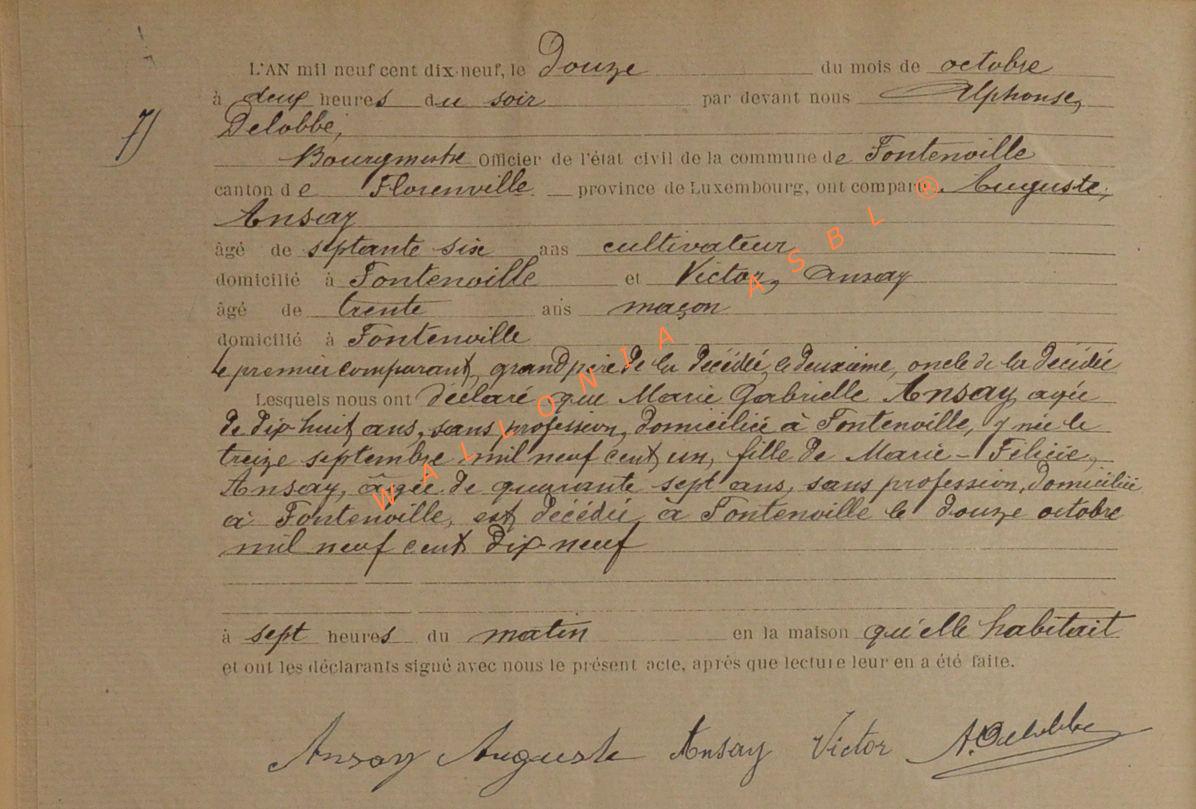 L'AN mil neuf cent dix-neuf, le Douze du mois de octobre
à deux heures du soir par devant nous Alphonse,
7)
Delobbe,
Bourgmestre Officier de l'état civil de la commune de Fontenoille
canton de Florenville province de Luxembourg, ont comparu Auguste,
Ansay
âgé de septante six ans cultivateur
domicilié à Fontenoille et Victor, Ansay
âgé de trente ans maçon
domicilié à Fontenoille
Le premier comparant, grand père de la décédée, le deuxième, oncle de la décédée
Lesquels nous ont déclaré que Marie Gabrielle Ansay agée
de dix huit ans, sans profession, domiciliée à Fontenoille, y née le
treize septembre mil neuf cent un, fille de Marie-Félicie,
Ansay, âgée de quarante sept ans, sans profession, domiciliée
à Fontenoille, est décédée à Fontenoille le douze octobre
mil neuf cent dix-neuf
à sept heures du matin en la maison qu'elle habitait
et ont les déclarants signé avec nous le présent acte, après que lecture leur en a été faite.
Ansay Auguste Ansay Victor A. Delobbe
WALLONIA ASBL ®